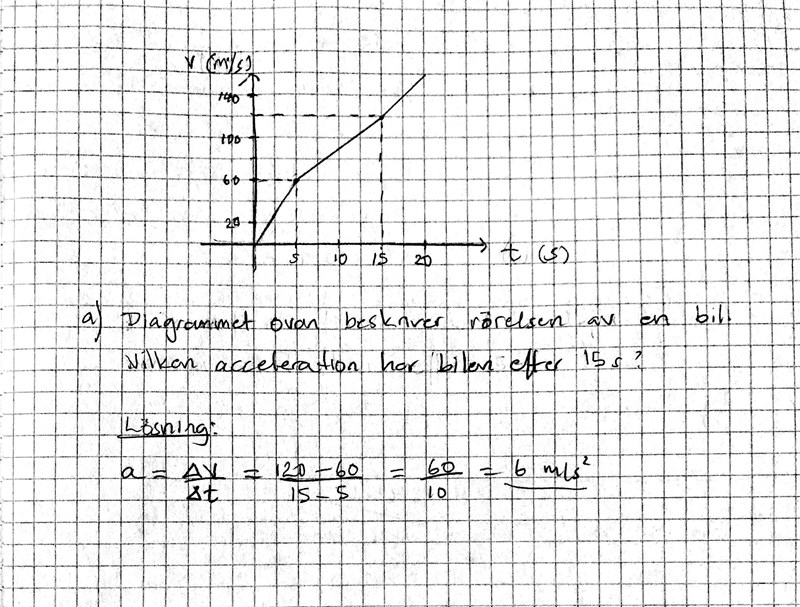 v (m/s)
140
100
60
20
5 10 15 20 t (s)
a) Diagrammet ovan beskriver rörelsen av en bil.
Vilken acceleration har bilen efter 15 s?
Lösning:
a = Δv/Δt = 120 - 60/15 - 5 = 60/10 = 6 m/s²